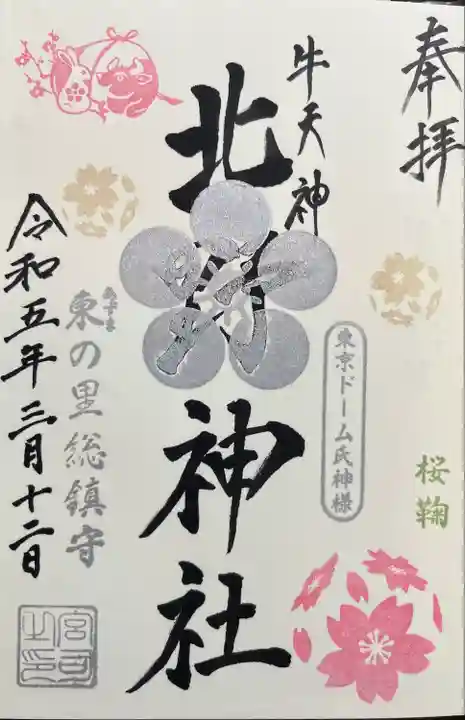 奉拝
桜鞠
牛天神
東京ドーム氏神様
北野神社
あずま
東の里総鎮守
令和五年三月十二日
宮司之印